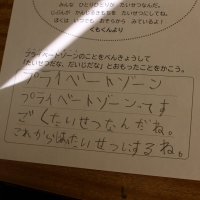 みんな ひとりひとりが たいせつなんだ。
じぶんが かんじるきもちを たいせつにしてね。
ぼくは いつでも おそらから みているよ!
くもくんより
プライベートゾーンのことをべんきょうして
「たいせつだな、だいじだな」とおもったことをかこう。
プライベートゾーン
プライベートゾーンってす
ごくたいせつなんだね。
これからはたいせつにするね。